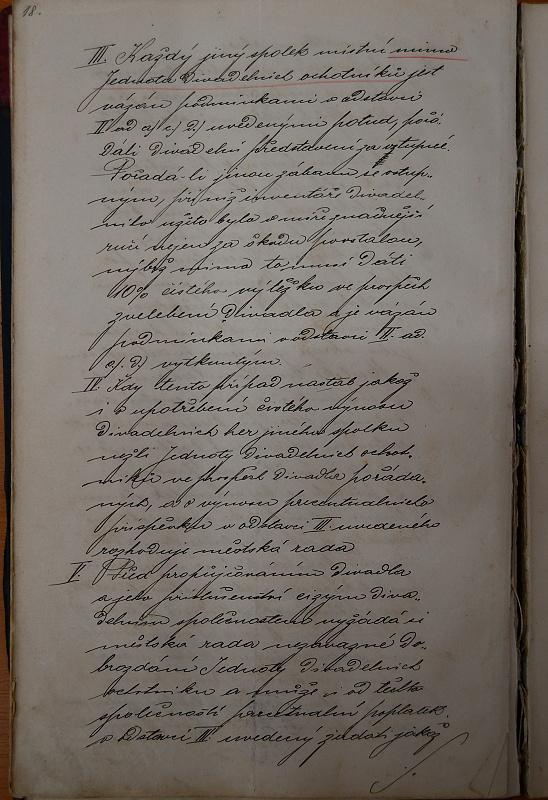 18.
III. Každý jiný spolek místní mimo
Jednotu divadelních ochotníků jest
vázán podmínkami v odstavci
II ad a) c) d.) uvedenými potud, pořá-
dá-li divadelní představení za vstupné.
Pořádá-li jinou zábavu se vstup-
ným, při níž inventáře divadel-
ního užito bylo v míře značnější
ručí nejen za škodu povstalou,
nýbrž mimo to musí dáti
10% čistého výtěžku ve prospěch
zvelebení divadla a je vázán
podmínkami v odstavci II. ad.
c). d) vytknutým.
IV. Kdy tento případ nastal jakož
i o upotřebení čistého výnosu
divadelních her jiného spolku
nežli Jednoty divadelních ochot-
níků ve prospěch divadla pořáda-
ných, a o výnosu procentualního
příspěvku v odstavci III uvedeného
rozhoduje městská rada
V. Před propůjčováním divadla
a jeho příslušenství cizým diva-
delním společnostem vyžádá si
městská rada nezávazné do-
brozdání Jednoty divadelních
ochotníků a může i od těchto
společností procentualní poplatek.
v odstavci III uvedený žádati jakož